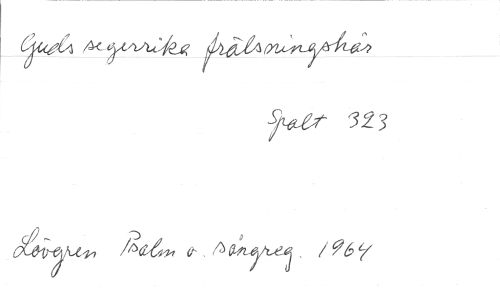 Guds segerrika frälsningshär
Spalt 323
Lövgren Psalm o. sångreg. 1964